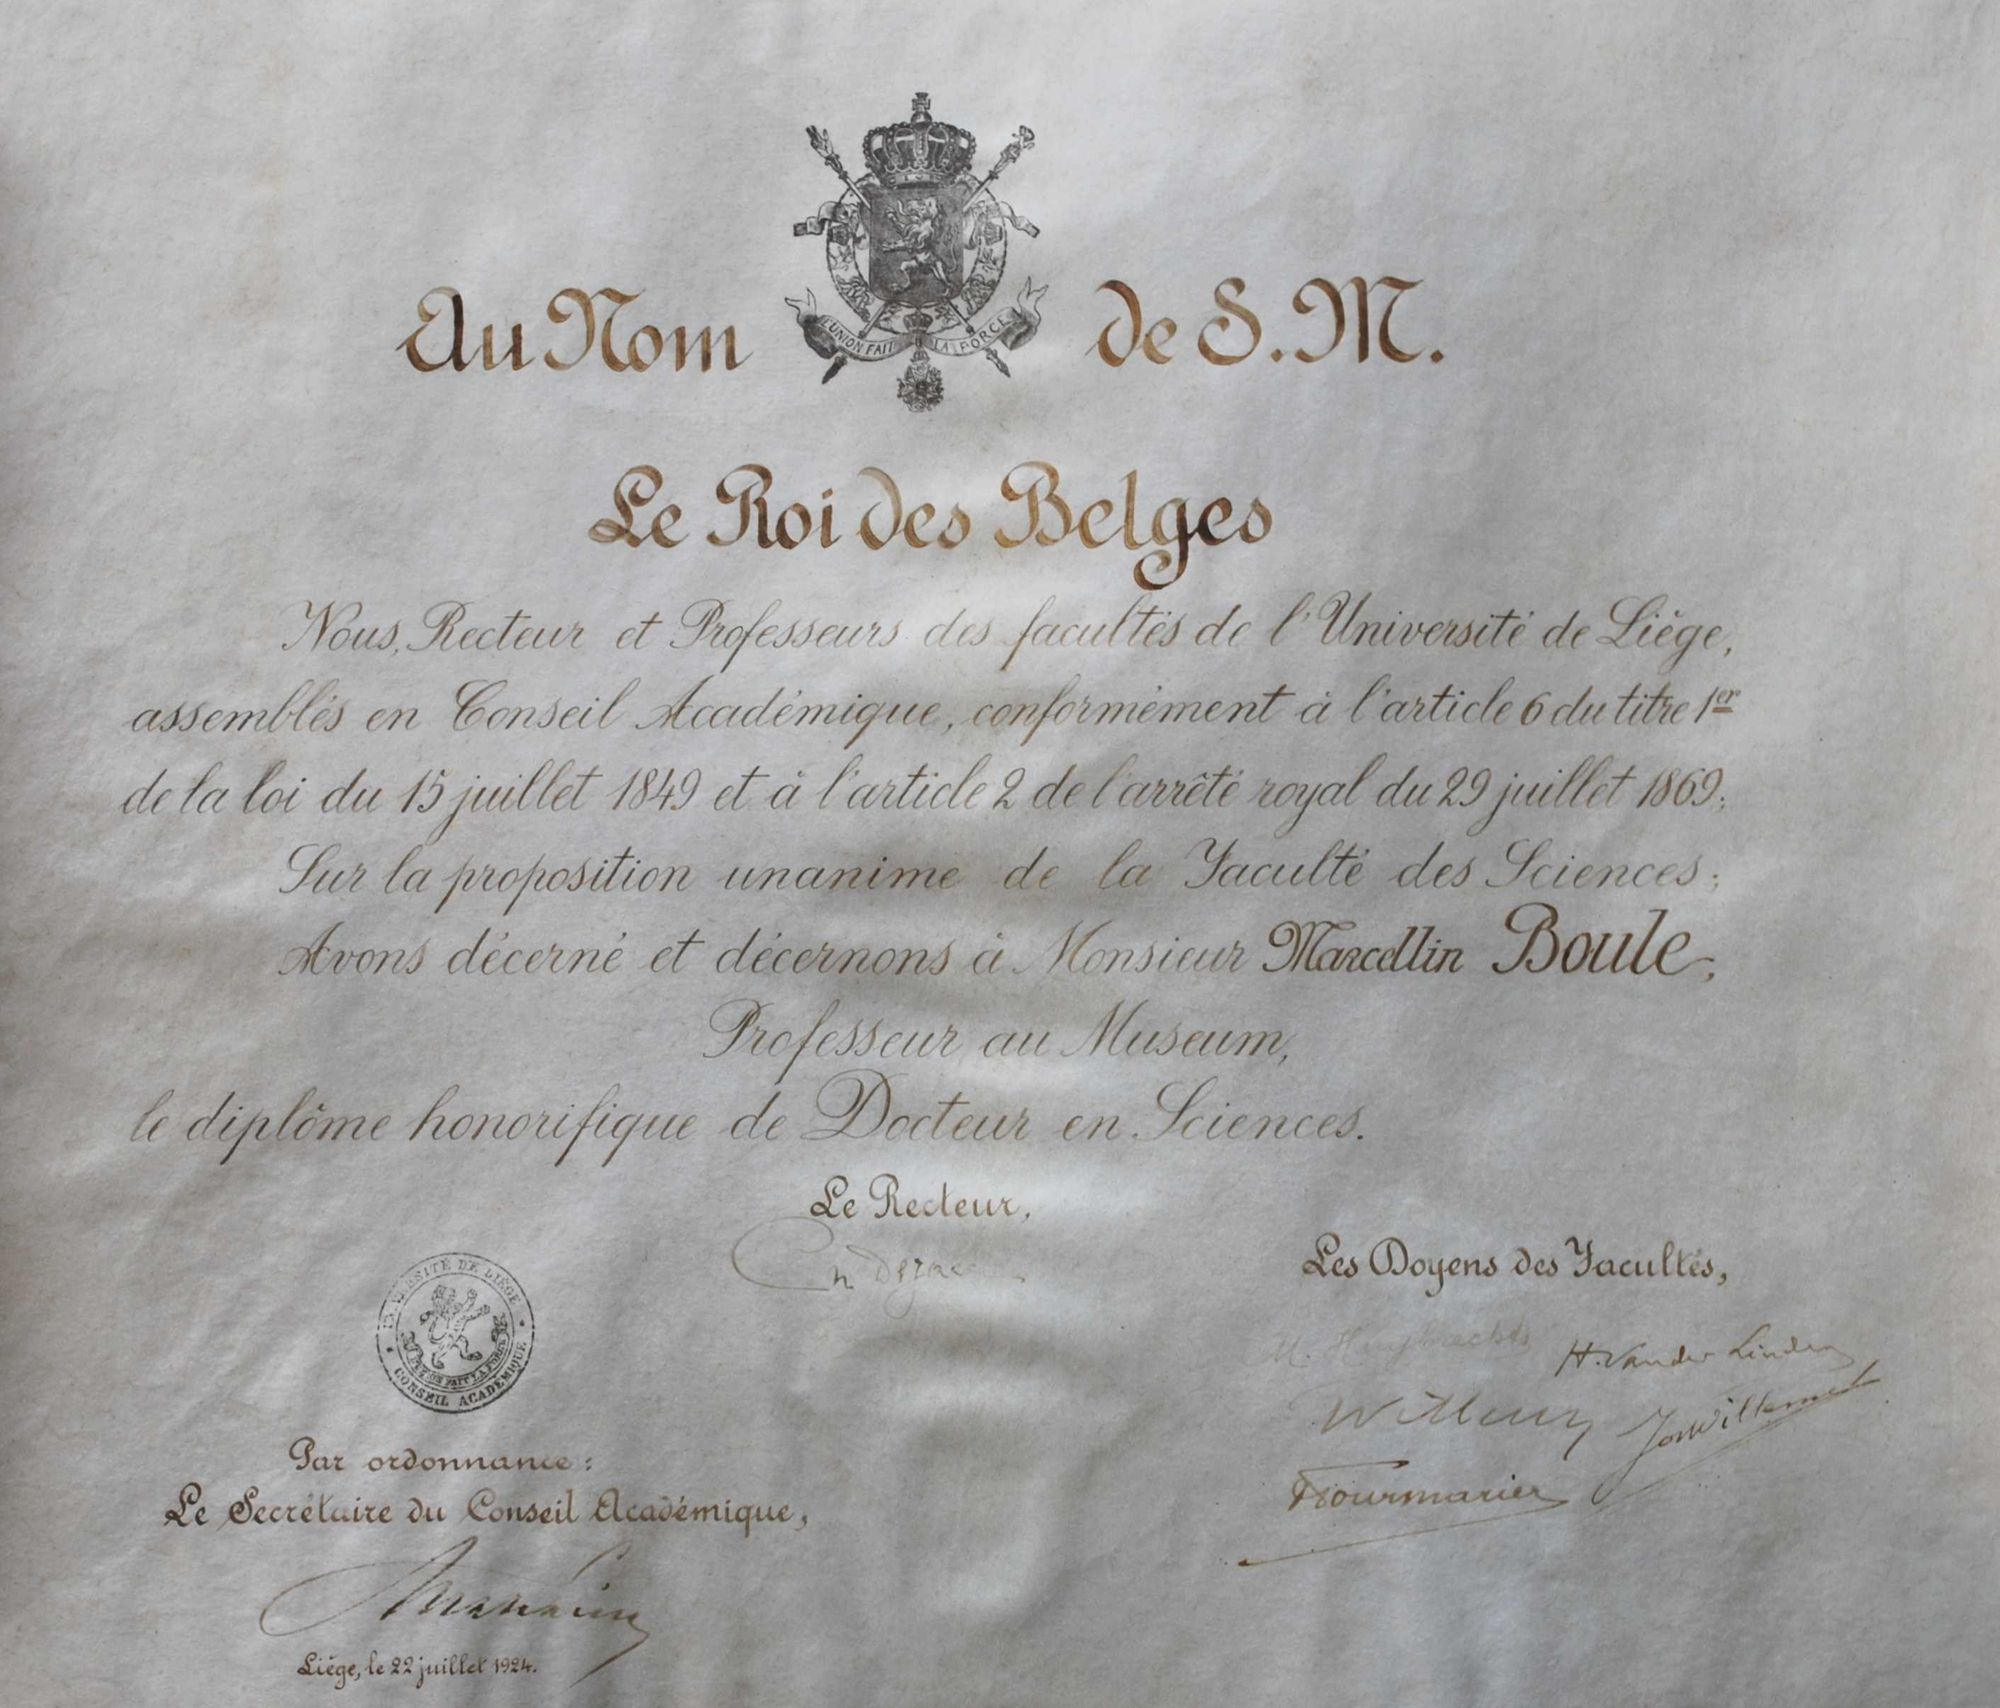 Au Nom de S. M.
L'UNION FAIT LA FORCE
Le Roi des Belges
Nous, Recteur et Professeurs des facultés de l'Université de Liége,
assemblés en Conseil Académique, conformément à l'article 6 du titre 1er
de la loi du 15 juillet 1849 et à l'article 2 de l'arrêté royal du 29 juillet 1869;
Sur la proposition unanime de la Faculté des Sciences;
Avons décerné et décernons à Monsieur Marcellin Boule,
Professeur au Museum,
le diplôme honorifique de Docteur en Sciences.
Le Recteur,
Les Doyens des Facultés,
M. Huybrechts H. Vander Linden
Fourmarier
UNIVERSITÉ DE LIÉGE
L'UNION FAIT LA FORCE
CONSEIL ACADÉMIQUE
Par ordonnance:
Le Secrétaire du Conseil Académique,
Liége, le 22 juillet 1924.